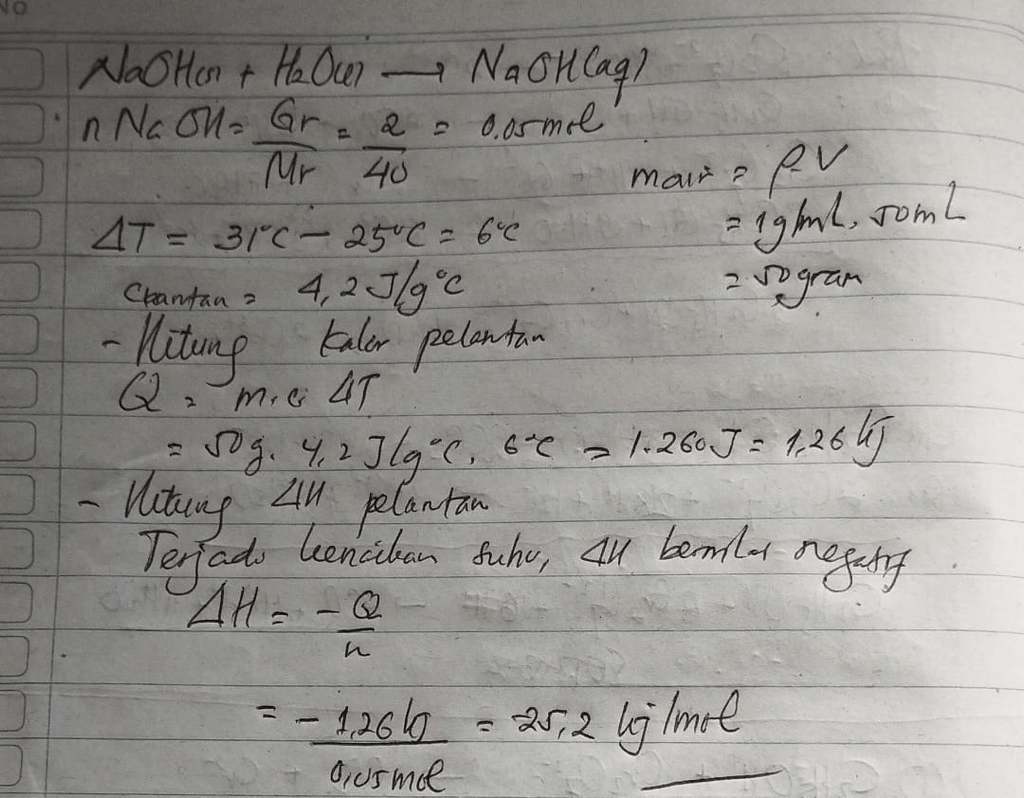 No
NaOH(s) + H2O(l) → NaOH(aq)
n NaOH = Gr/Mr = 2/40 = 0.05 mol
m air = ρ.V
= 1g/mL. 50mL
= 50 gram
ΔT = 31°C - 25°C = 6°C
C larutan = 4,2 J/g°C
- Hitung kalor pelarutan
Q = m.c. ΔT
= 50g. 4,2 J/g°C. 6°C = 1.260 J = 1,26 kj
- Hitung ΔH pelarutan
Terjadi kenaikan suhu, ΔH bernilai negatif
ΔH = -Q/n
= -1,26 kj/0,05 mol = 25,2 kj/mol